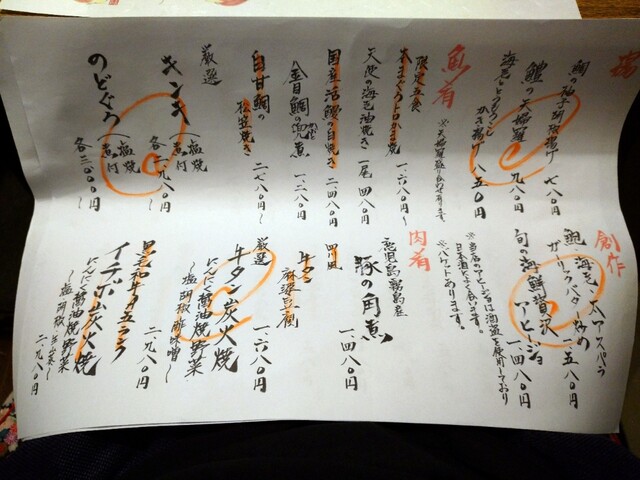 揚
鯛の柚子胡椒揚げ 七八〇円
鱧の天婦羅 九八〇円
海老とうもろこし
かき揚げ 八五〇円
※天婦羅盛りあわせあります。
魚肴
限定五食
本まぐろトロタタ焼 一、六八〇円〜
天使の海老油焼き 一尾 四八〇円
国産活鰻の白焼き 二、四八〇円
金目鯛の兜煮 一、二八〇円
白甘鯛の
松笠焼き 二、七八〇円〜
厳選
キンキ 塩焼 煮付
各二、九八〇円〜
のどぐろ 塩焼 煮付
各三、〇〇〇円
創作
鮑、海老、太アスパラ
ガーリックバター炒め 一、五八〇円
旬の海鮮贅沢
アヒージョ 一、四八〇円
※当店のアヒージョは酒盗を使用しており
日本酒によく合います。
※バケットあります。
肉肴
鹿児島霧島産
豚の角煮 一、四八〇円
四川風
牛すじ麻婆豆腐
厳選
牛タン炭火焼 一、六八〇円
にんにく醤油焼野菜
〜塩、胡椒、酢味噌〜
黒毛和牛タユニック 二、九八〇円
イチボ炭火焼
にんにく醤油焼野菜
二、九八〇円